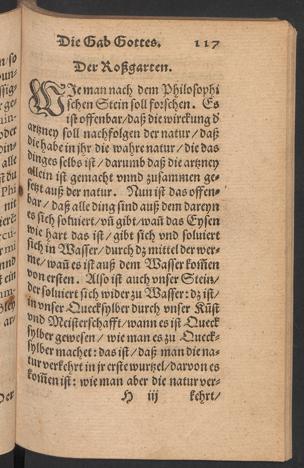 Die Gab Gottes. 117
Der Roßgarten.
WJe man nach dem Philosophi
schen Stein soll forschen. Es
ist offenbar/ daß die wirckung d'
artzney soll nachfolgen der natur/ daß
die habe in jhr die wahre natur/ die das
dinges selbs ist/ darumb daß die artzney
allein ist gemacht vnnd zusammen ge-
setzt auß der natur. Nun ist das offen-
bar/ daß alle ding sind auß dem dareyn
es sich soluiert/ vñ gibt/ wañ das Eysen
wie hart das ist/ gibt sich vnd soluiert
sich in Wasser/ durch dz mittel der wer-
me/ wañ es ist auß dem Wasser kom̃en
von ersten. Also ist auch vnser Stein/
der soluiert sich wider zu Wasser: dz ist/
in vnser Queckſylber durch vnser Kũst
vnd Meisterschafft/ wann es ist Queck
sylber gewesen/ wie man es zu Queck-
sylber machet: das ist/ daß man die na-
tur verkehrt in jr erste wurtzel/ darvon es
kom̃en ist: wie man aber die natur ver-
H iij kehrt/